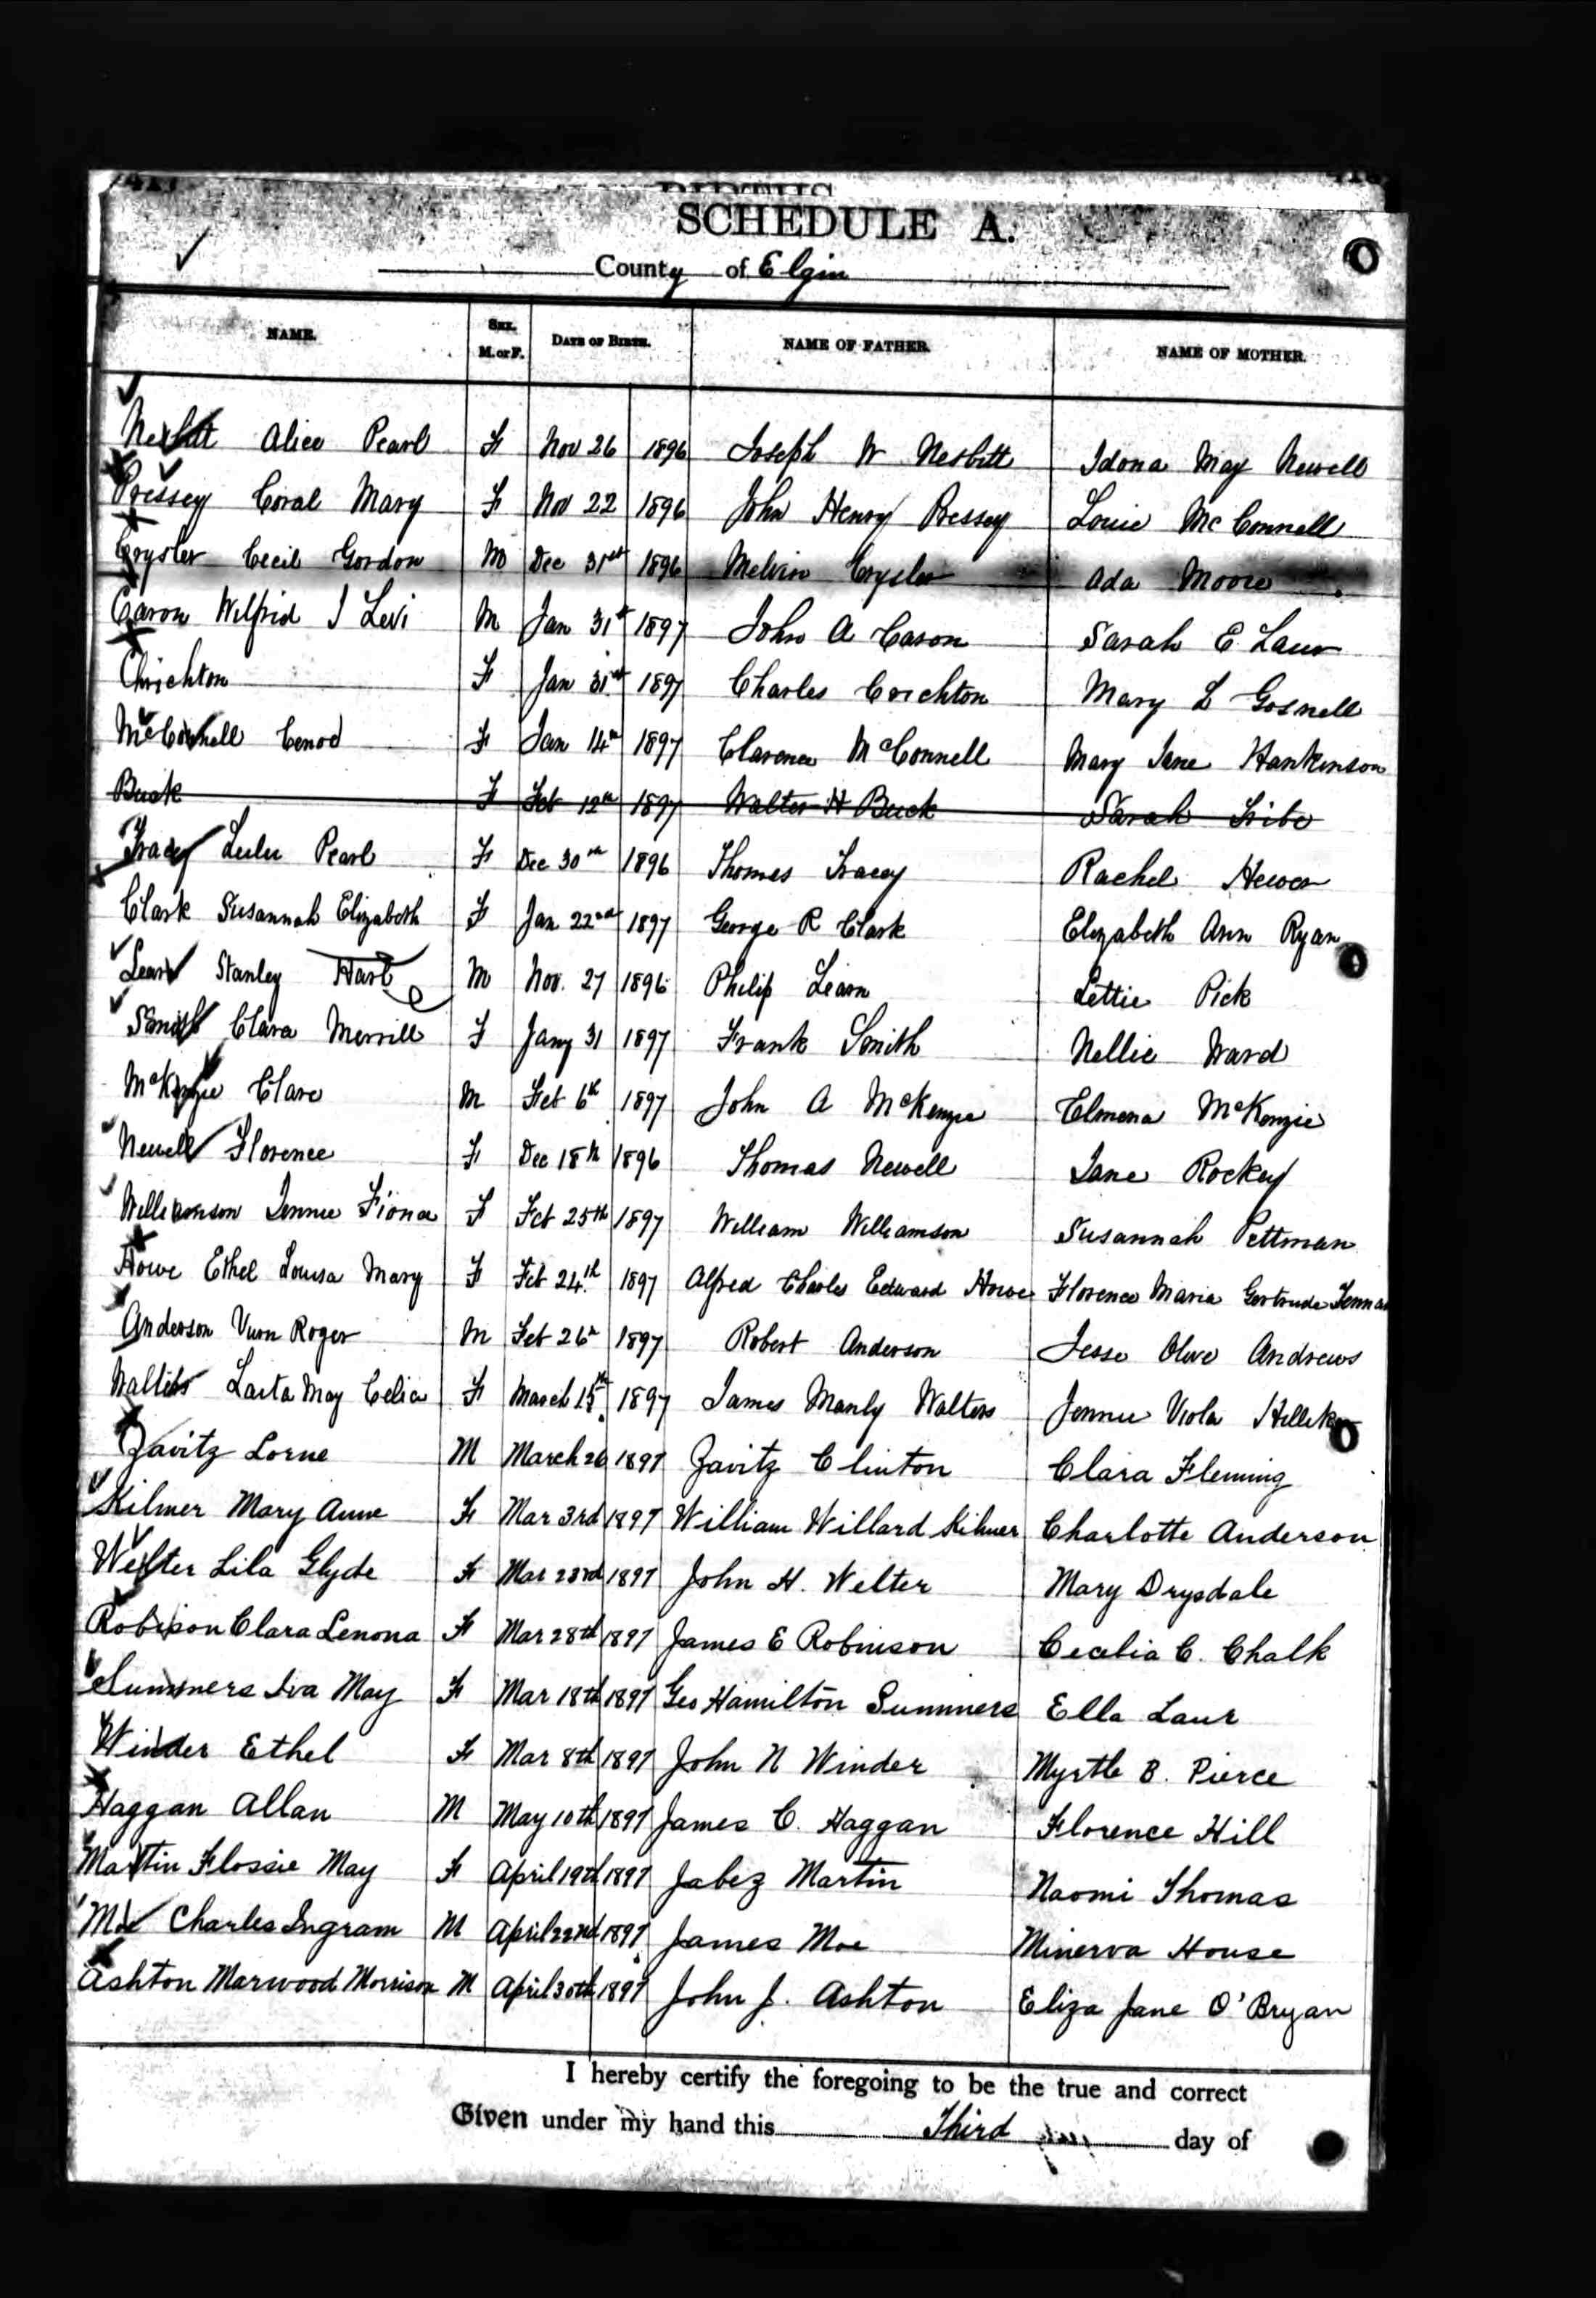 BIRTHS
SCHEDULE A.
County of Elgin
NAME. SEX. M. or F. DATE OF BIRTH. NAME OF FATHER. NAME OF MOTHER.
Nesbitt Alice Pearl F Nov 26 1896 Joseph W Nesbitt Idona May Newell
Pressey Coral Mary F Nov 22 1896 John Henry Pressey Louie McConnell
Crysler Cecil Gordon M Dec 31st 1896 Melvin Crysler Ada Moore
Caron Wilfrid J Levi M Jan 31st 1897 John A Cason Sarah E Laur
Chrichton F Jan 31st 1897 Charles Crichton Mary L Gosnell
McConnell Cenod F Jan 14th 1897 Clarence McConnell Mary Jane Hankinson
Buck F Feb 12th 1897 Walter H Buck Sarah Tribe
Tracey Lulu Pearl F Dec 30th 1896 Thomas Tracey Rachel Hewer
Clark Susannah Elizabeth F Jan 22nd 1897 George R Clark Elizabeth Ann Ryan
Learn Stanley Harb M Nov. 27 1896 Philip Learn Lettie Pick
Smith Clara Merrill F Jany 31 1897 Frank Smith Nellie Ward
McKenzie Clare M Feb 6th 1897 John A McKenzie Elmena McKenzie
Newell Florence F Dec 18th 1896 Thomas Newell Jane Rockey
Williamson Jennie Fiona F Feb 25th 1897 William Williamson Susannah Pettman
Howe Ethel Louisa Mary F Feb 24th 1897 Alfred Charles Edward Howe Florence Maria Gertrude
Anderson Vurn Roger M Feb 26th 1897 Robert Anderson Jesse Olive Andrews
Walters Laita May Celia F March 15th 1897 James Manly Walters Jennie Viola
Zavitz Lorne M March 26 1897 Zavitz Clinton Clara Fleming
Kilmer Mary Anne F Mar 3rd 1897 William Willard Kilmer Charlotte Anderson
Welter Lila Glyde F Mar 23rd 1897 John H. Welter Mary Drysdale
Robinson Clara Lenona F Mar 28th 1897 James E Robinson Cecelia C. Chalk
Summers Iva May F Mar 18th 1897 Geo Hamilton Summers Ella Laur
Winder Ethel F Mar 8th 1897 John N Winder Myrtle B. Pierce
Haggan Allan M May 10th 1897 James C. Haggan Florence Hill
Martin Flossie May F April 19th 1897 Jabez Martin Naomi Thomas
Moe Charles Ingram M April 22nd 1897 James Moe Minerva House
Ashton Marwood Morrison M April 30th 1897 John J. Ashton Eliza Jane O'Bryan
I hereby certify the foregoing to be the true and correct
Given under my hand this Third day of